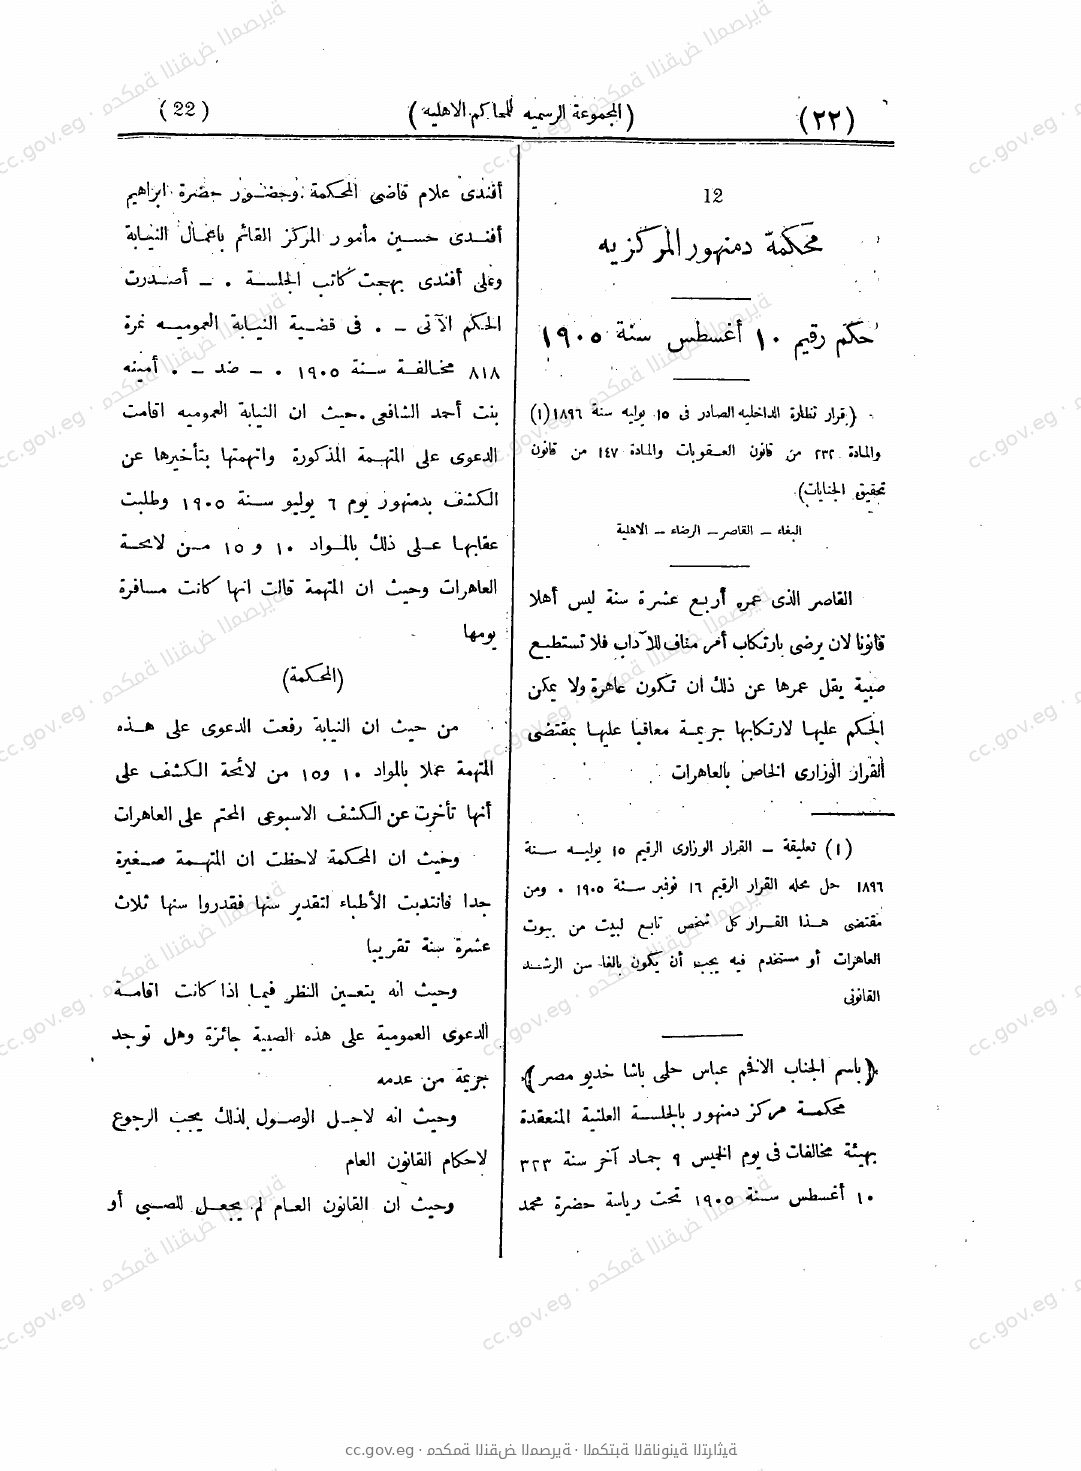 (٢٢) (المجموعة الرسميه للمحاكم الاهليه) (22)
12
محكمة دمنهور المركزيه
حكم رقيم ١٠ أغسطس سنة ١٩٠٥
(قرار نظارة الداخليه الصادر فى ١٥ يوليه سنة ١٨٩٦(١)
والمادة ٢٣٢ من قانون العقوبات والمادة ١٤٧ من قانون
تحقيق الجنايات)
البغاء – القاصر – الرضاء – الاهلية
القاصر الذى عمره أربع عشرة سنة ليس أهلا
قانونا لان يرضى بارتكاب أمر مناف للآداب فلا تستطيع
صبية يقل عمرها عن ذلك أن تكون عاهرة ولا يمكن
الحكم عليها لارتكابها جريمة معاقبا عليها بمقتضى
القرار الوزارى الخاص بالعاهرات
(١) تعليقة – القرار الوزارى الرقيم ١٥ يوليه سنة
١٨٩٦ حل محله القرار الرقيم ١٦ نوفمبر سنة ١٩٠٥ . ومن
مقتضى هذا القرار كل شخص تابع لبيت من بيوت
العاهرات أو مستخدم فيه يجب أن يكون بالغا سن الرشد
القانونى
(باسم الجناب الافخم عباس حلمى باشا خديو مصر)
محكمة مركز دمنهور بالجلسة العلنية المنعقدة
بهيئة مخالفات فى يوم الخميس ٩ جماد آخر سنة ٣٢٣
١٠ أغسطس سنة ١٩٠٥ تحت رياسة حضرة محمد
أفندى علام قاضى المحكمة وحضور حضرة ابراهيم
أفندى حسين مأمور المركز القائم باعمال النيابة
وعلى أفندى بهجت كاتب الجلسة . – أصدرت
الحكم الآتى – . فى قضية النيابة العموميه نمرة
٨١٨ مخالفة سنة ١٩٠٥ . – ضد – . أمينه
بنت أحمد الشافعى . حيث ان النيابة العموميه اقامت
الدعوى على المتهمة المذكورة واتهمتها بتأخيرها عن
الكشف بدمنهور يوم ٦ يوليو سنة ١٩٠٥ وطلبت
عقابها على ذلك بالمواد ١٠ و ١٥ من لائحة
العاهرات وحيث ان المتهمة قالت انها كانت مسافرة
يومها
(المحكمة)
من حيث ان النيابة رفعت الدعوى على هذه
المتهمة عملا بالمواد ١٠ و١٥ من لائحة الكشف على
أنها تأخرت عن الكشف الاسبوعى المحتم على العاهرات
وحيث ان المحكمة لاحظت ان المتهمة صغيرة
جدا فانتدبت الأطباء لتقدير سنها فقدروا سنها ثلاث
عشرة سنة تقريبا
وحيث انه يتعين النظر فيما اذا كانت اقامة
الدعوى العمومية على هذه الصبية جائزة وهل توجد
جريمة من عدمه
وحيث انه لاجل الوصول لذلك يجب الرجوع
لاحكام القانون العام
وحيث ان القانون العام لم يجعل للصبى أو
cc.gov.eg · محكمة النقض المصرية · المكتبة القانونية التراثية